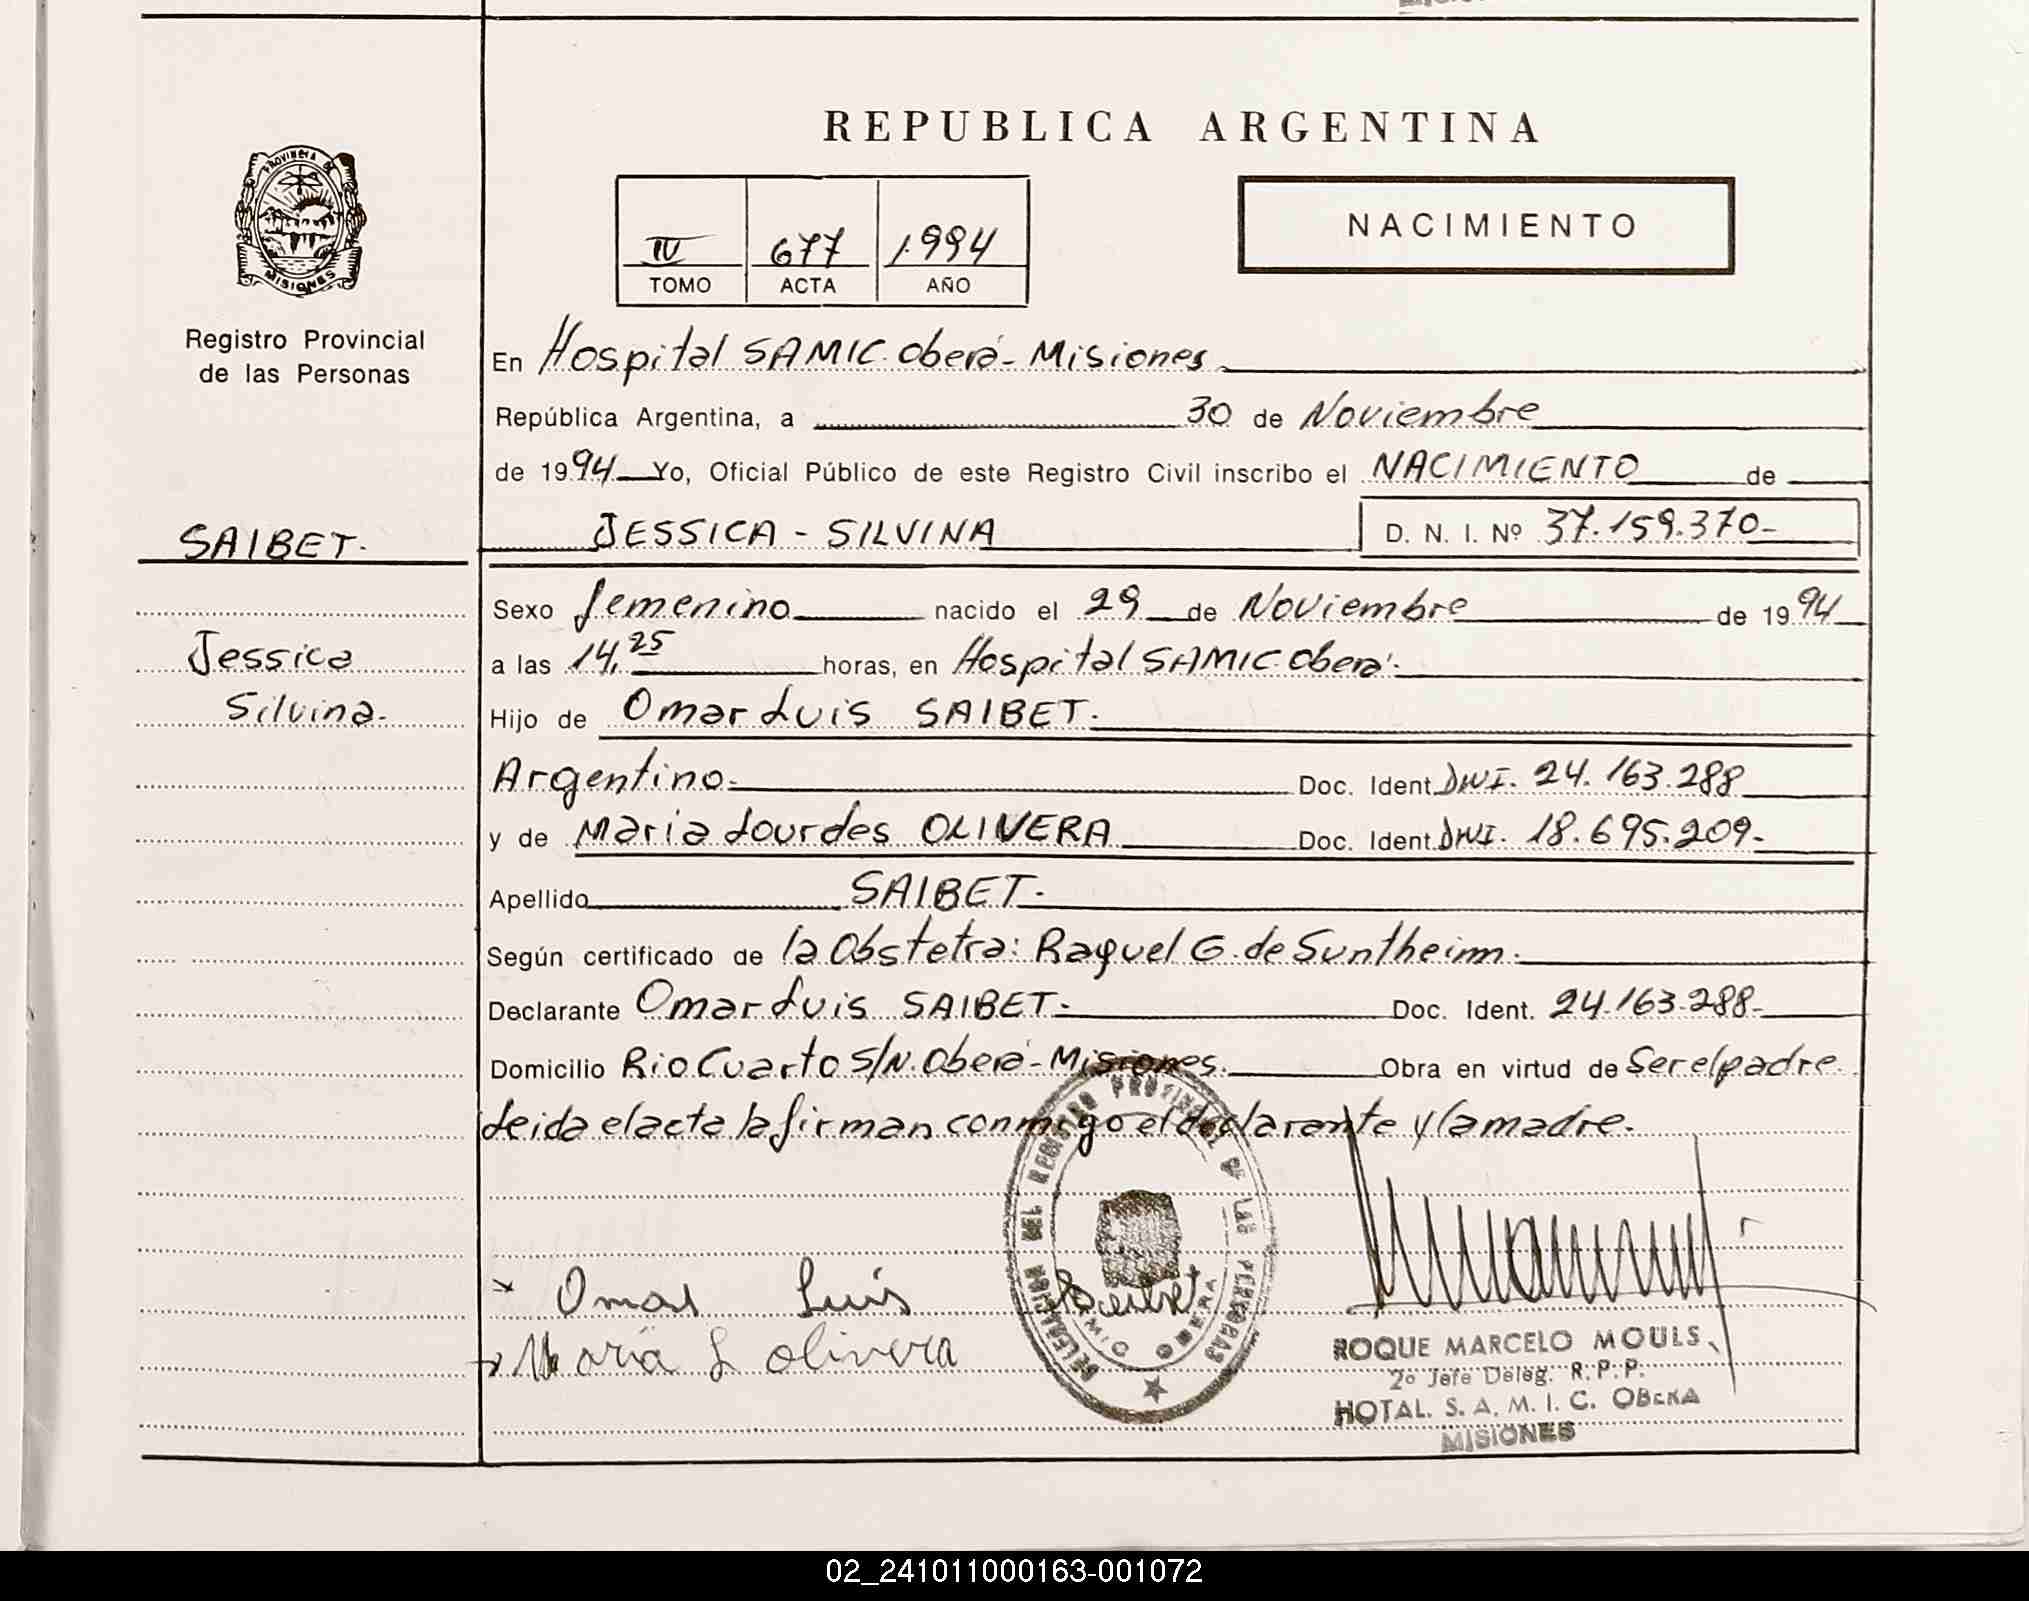 REPUBLICA ARGENTINA
PROVINCIA DE
MISIONES
Registro Provincial
de las Personas
NACIMIENTO
IV 677 1.994
TOMO ACTA AÑO
En Hospital SAMIC. Oberá - Misiones.
República Argentina, a 30 de Noviembre
de 1994 Yo, Oficial Público de este Registro Civil inscribo el NACIMIENTO de
SAIBET.
JESSICA - SILVINA D. N. I. Nº 37.159.370-
Sexo femenino nacido el 29 de Noviembre de 1994
Jessica
a las 14,25 horas, en Hospital SAMIC. Oberá.
Silvina.
Hijo de Omar Luis SAIBET.
Argentino. Doc. Ident. DNI. 24.163.288
y de Maria Lourdes OLIVERA Doc. Ident. DNI. 18.695.209-
Apellido SAIBET.
Según certificado de la Obstetra: Raquel G. de Suntheim.
Declarante Omar Luis SAIBET. Doc. Ident. 24.163.288-
Domicilio Rio Cuarto S/N. Oberá - Misiones. Obra en virtud de Ser el padre.
Leida el acta la firman conmigo el declarante y la madre.
DELEGACION DEL REGISTRO PROVINCIAL DE LAS PERSONAS
OBERA
Omar Luis Saibet
Maria L olivera
ROQUE MARCELO MOULS
2º Jefe Deleg. R. P. P.
HOTAL. S. A. M. I. C. OBERA
MISIONES
02_241011000163-001072